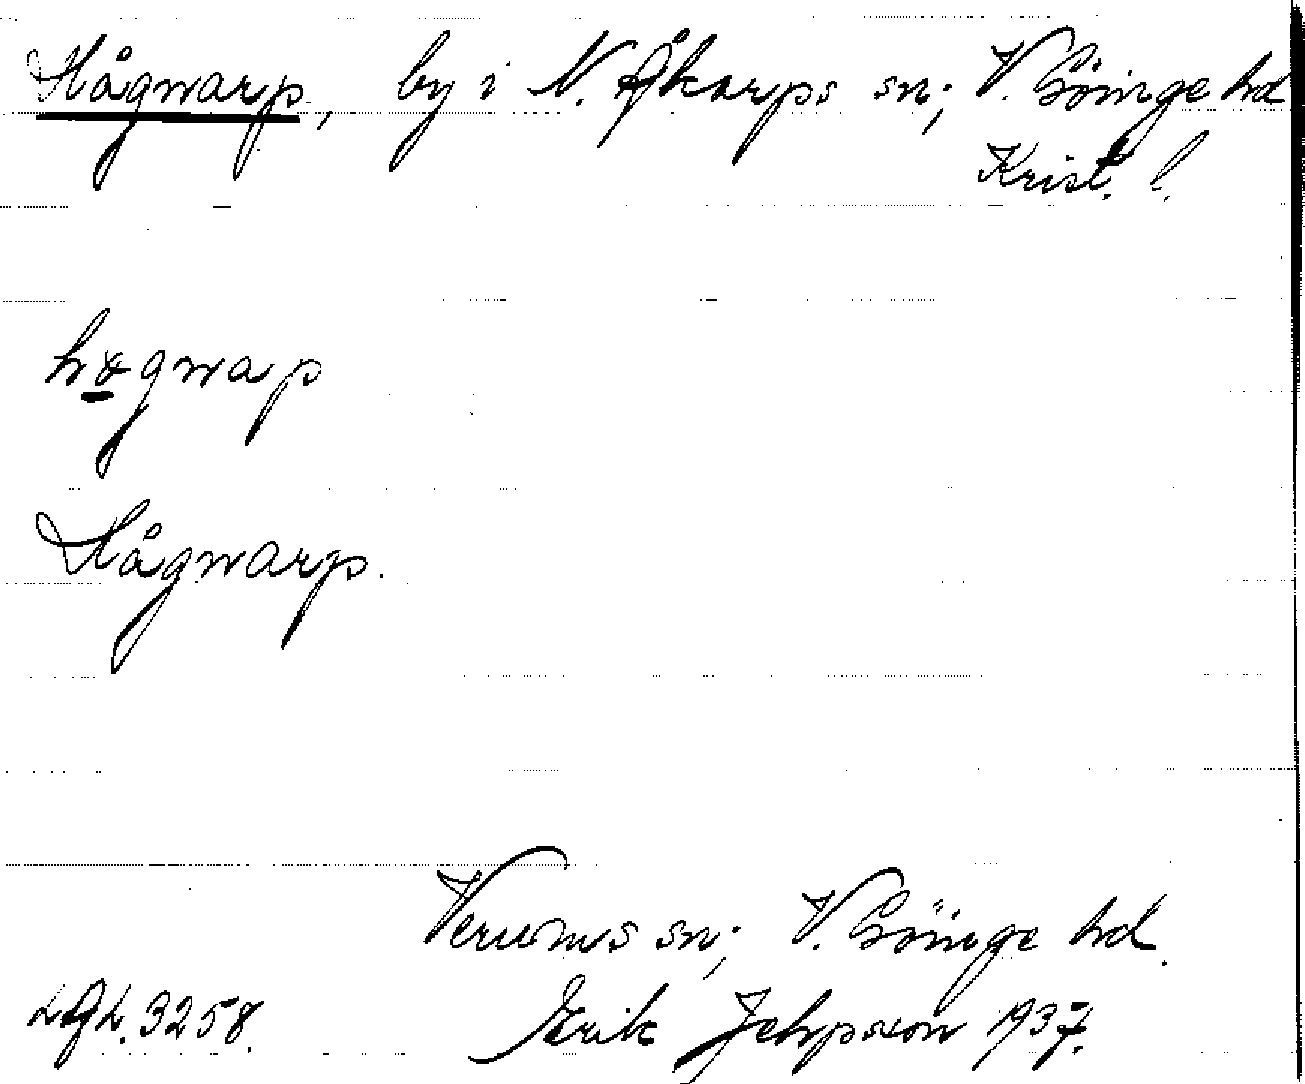 Hågnarp, by i N. Åkarps sn; V. Göinge hd
Krist. l.
Hågnarp.
Verums sn; V. Göinge hd.
3258. Erik Jehpsson 1937.